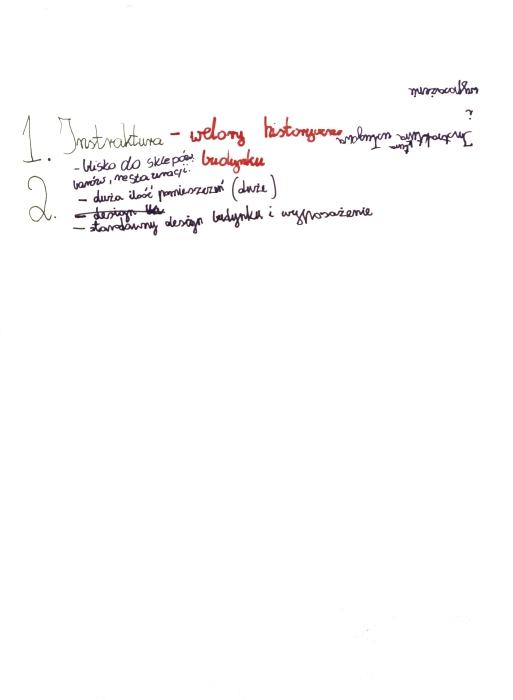 1. Instraktura - walory historyczne budynku
- blisko do sklepów,
barów, restauracji.
2. - duża ilość pomieszczeń (duże)
- design
- starodawny design budynku i wyposażenie
i
wyposażenie